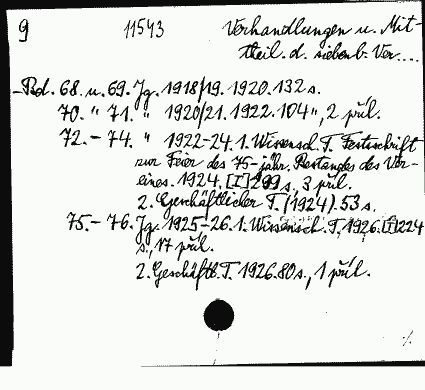 9 11543 Verhandlungen u. Mit-
theil. d. siebenb. Ver....
-Bd. 68. u. 69. Jg. 1918/19. 1920. 132 s.
70. " 71. " 1920/21. 1922. 104 ", 2 příl.
72. - 74. " 1922-24. 1. Wissensch. T. Festschrift
zur Feier des 75-jähr. Bestandes des Ver-
eines. 1924. [I] 299 s., 3 příl.
2. Geschäftlicher T. (1924). 53 s.
75. - 76. Jg. 1925-26. 1. Wissensch. T. 1926. [I] 224
s., 17 příl.
2. Geschäftl. T. 1926. 80 s., 1 příl.
./.